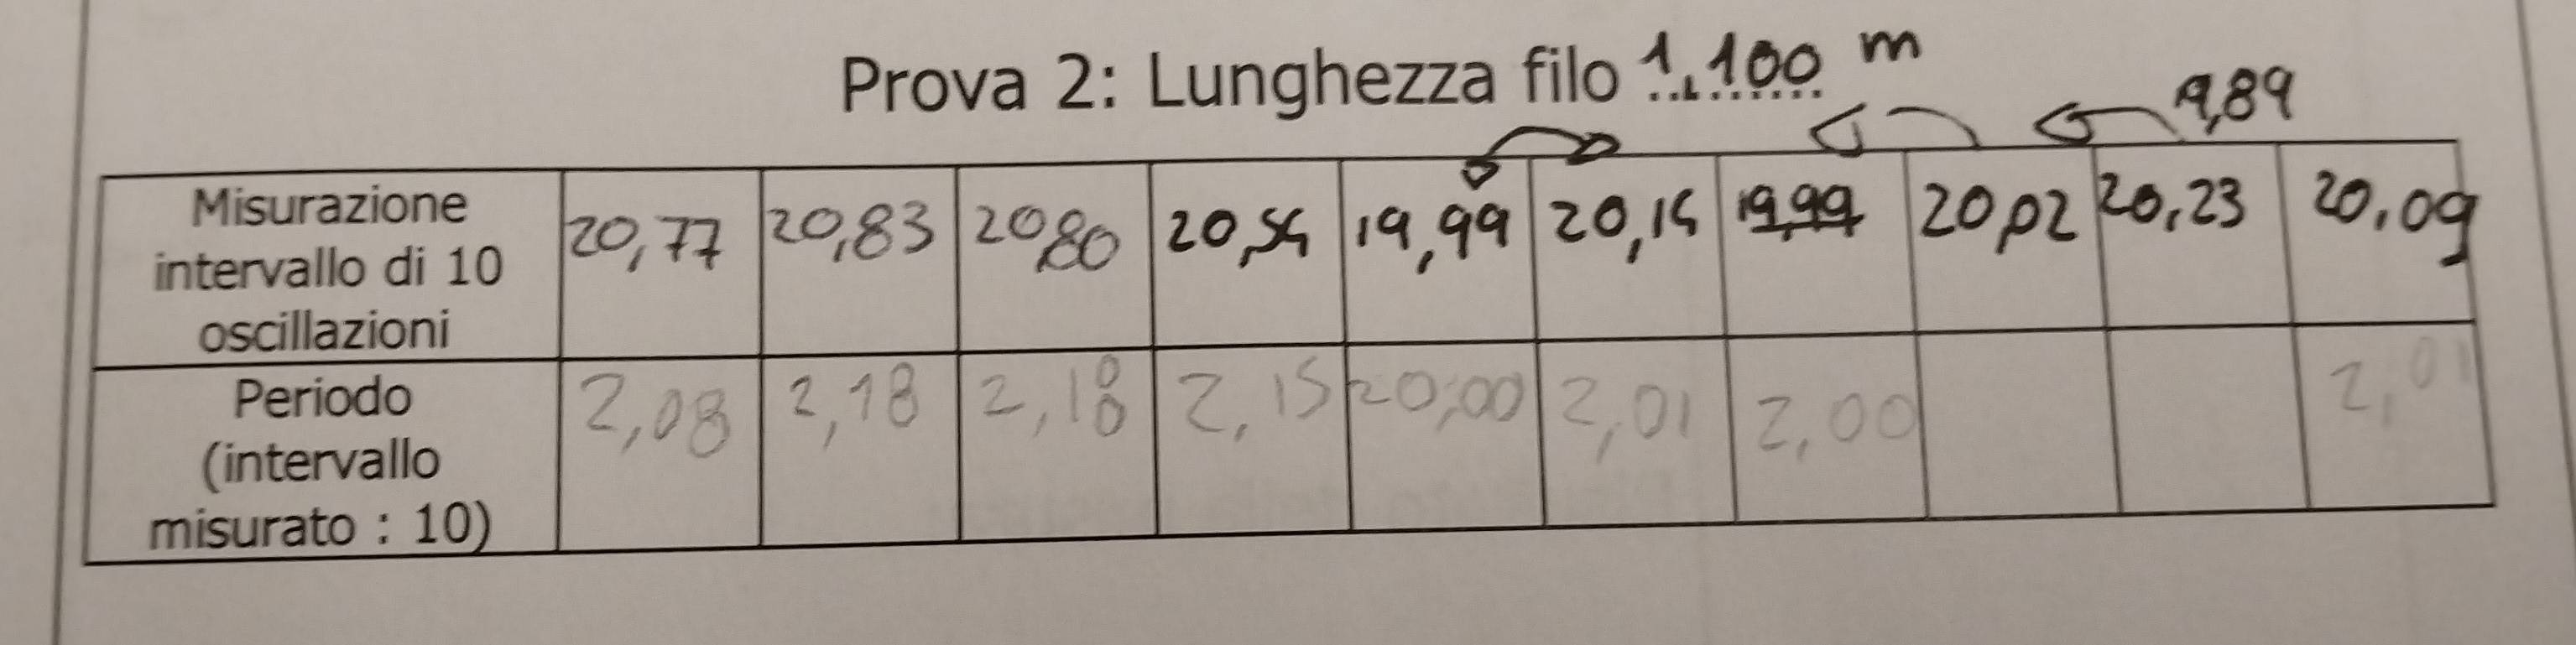 Prova 2: Lunghezza filo 1,100 m
9,89
Misurazione intervallo di 10 oscillazioni 20,77 20,83 20,80 20,54 19,99 20,14 19,99 20,02 20,23 20,09
Periodo (intervallo misurato : 10) 2,08 2,18 2,18 2,15 20,00 2,01 2,00 2,01